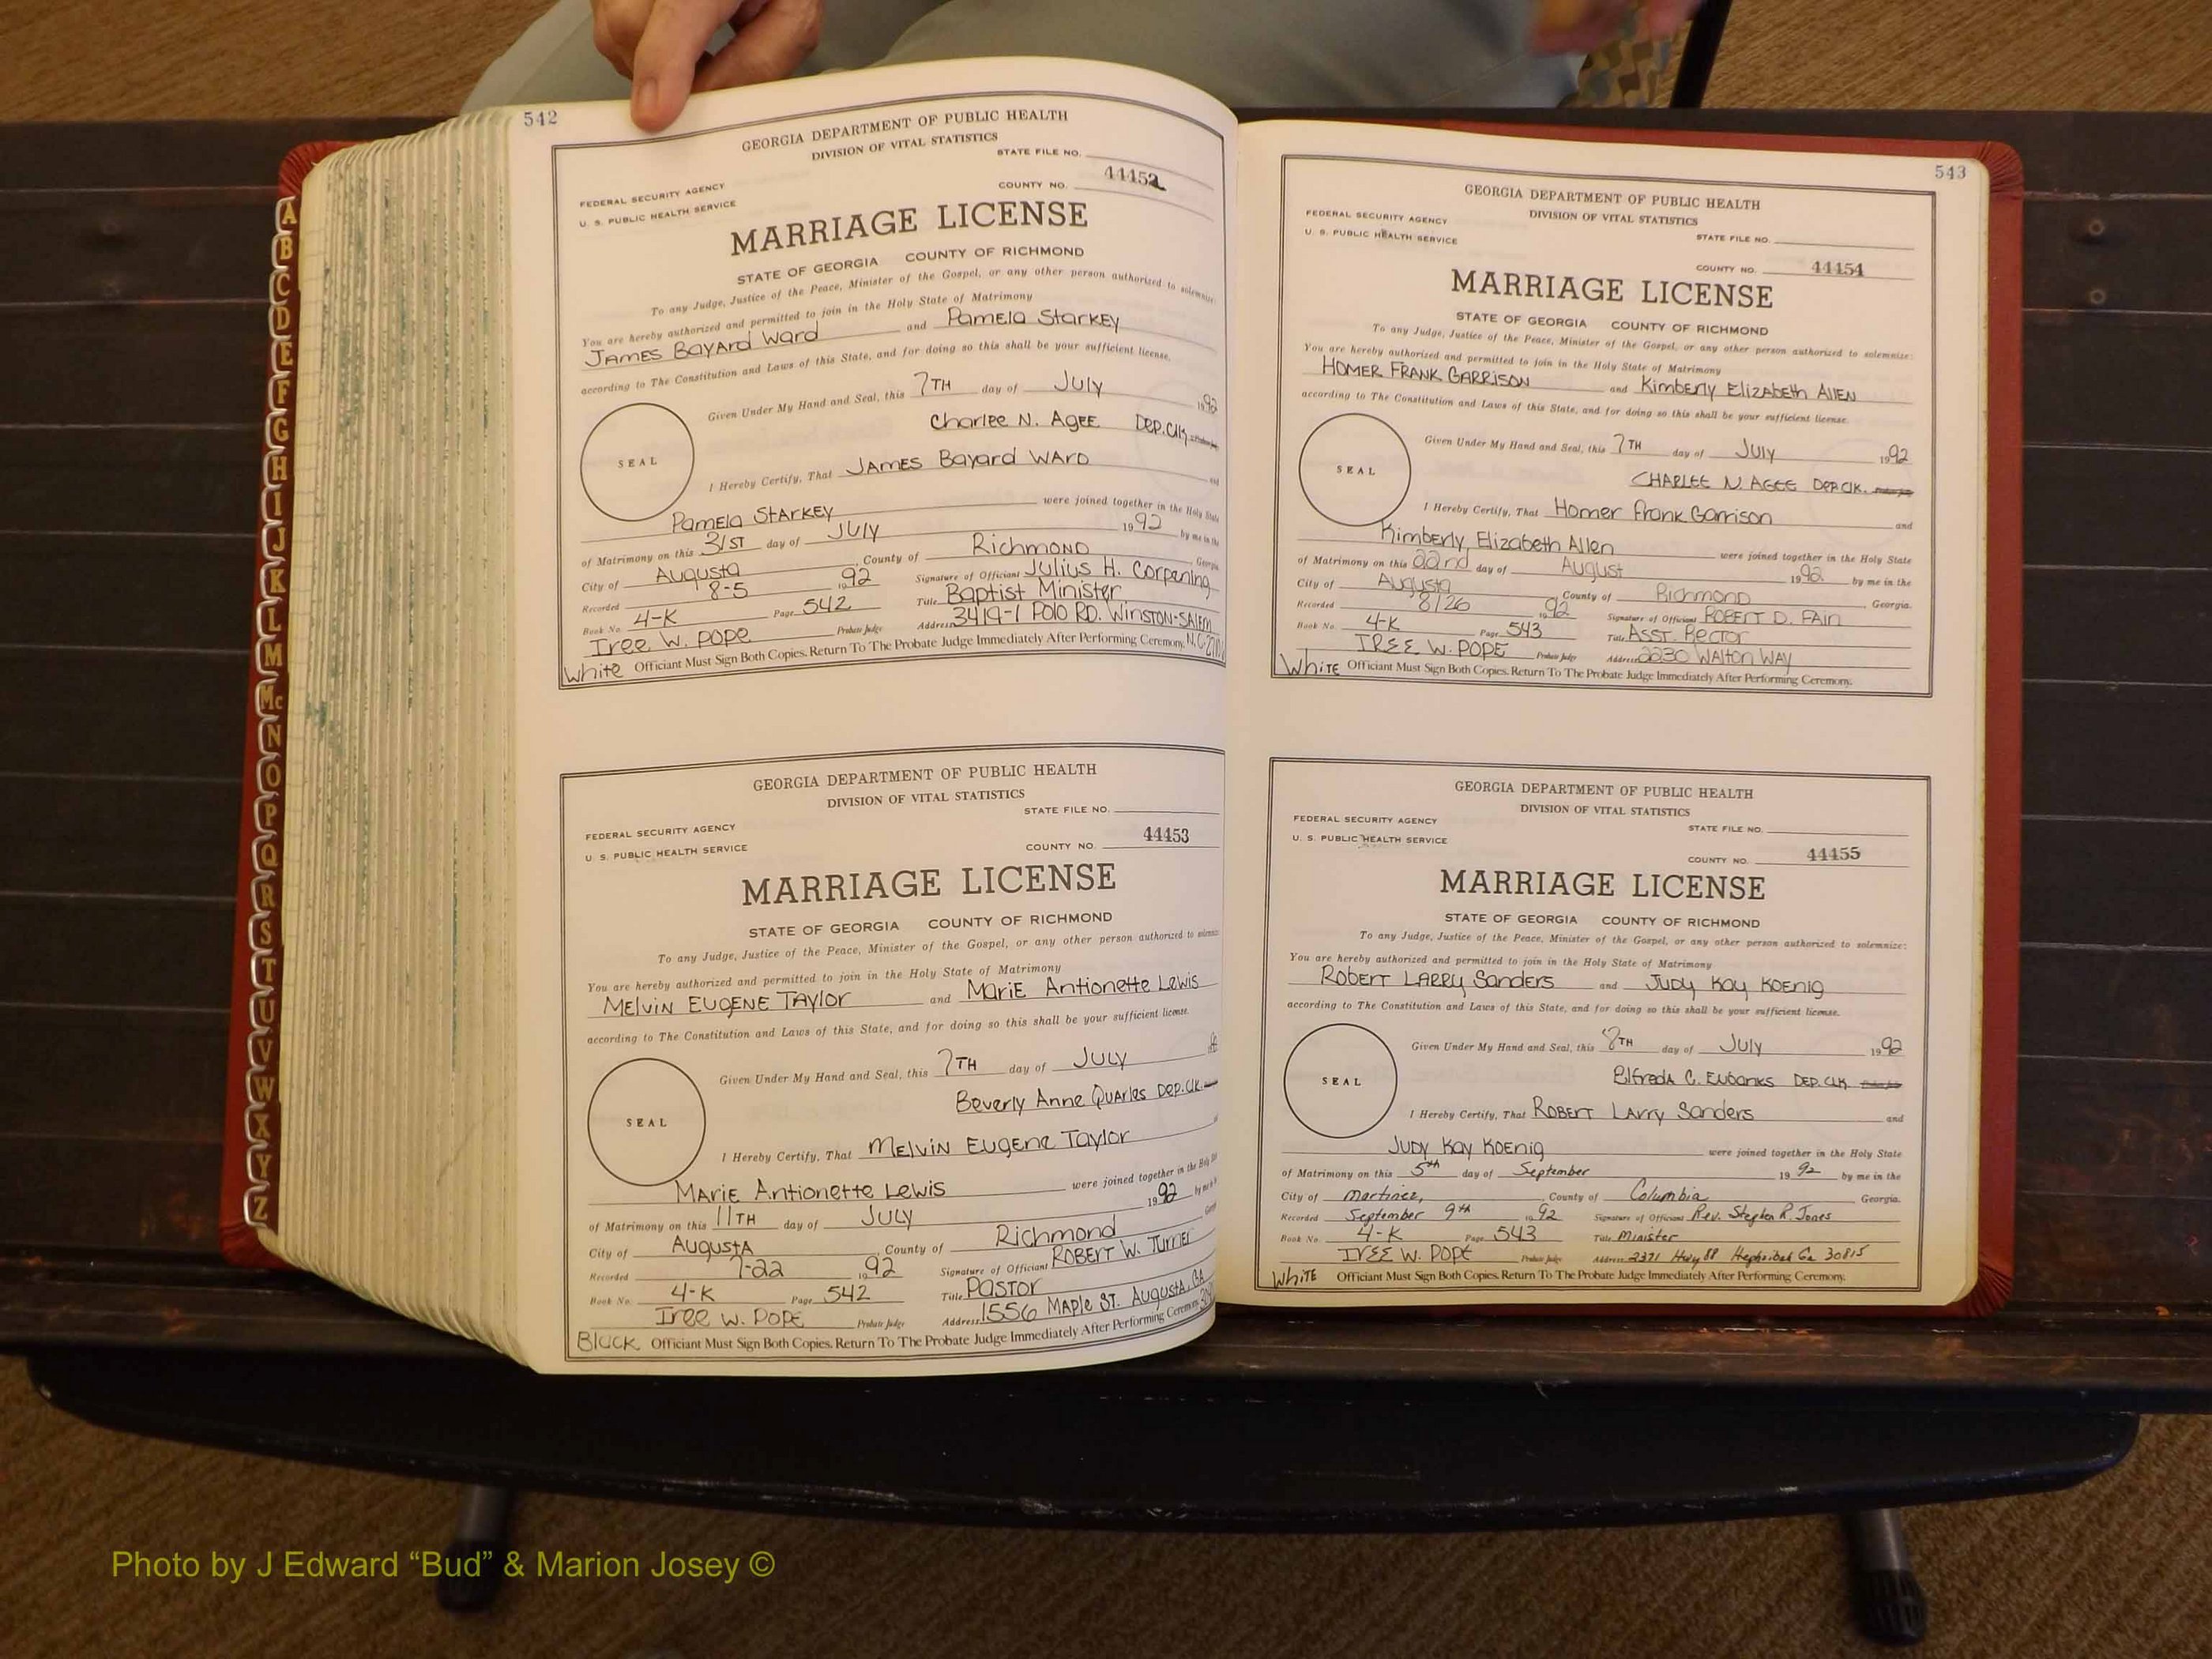 542
GEORGIA DEPARTMENT OF PUBLIC HEALTH
DIVISION OF VITAL STATISTICS
STATE FILE NO.
FEDERAL SECURITY AGENCY
U. S. PUBLIC HEALTH SERVICE
COUNTY NO. 44452
MARRIAGE LICENSE
STATE OF GEORGIA COUNTY OF RICHMOND
To any Judge, Justice of the Peace, Minister of the Gospel, or any other person authorized to solemnize:
You are hereby authorized and permitted to join in the Holy State of Matrimony
James Bayard Ward and Pamela Starkey
according to The Constitution and Laws of this State, and for doing so this shall be your sufficient license.
Given Under My Hand and Seal, this 7TH day of July 1992
Charlee N. Agee Dep. Clk.
SEAL
I Hereby Certify, That James Bayard Ward and
Pamela Starkey were joined together in the Holy State
of Matrimony on this 31ST day of July 1992 by me in the
City of Augusta, County of Richmond Georgia
Recorded 8-5 1992 Signature of Officiant Julius H. Corpening
Book No. 4-K Page 542 Title Baptist Minister
Iree W. Pope Probate Judge Address 3419-1 Polo RD. Winston-Salem
White Officiant Must Sign Both Copies. Return To The Probate Judge Immediately After Performing Ceremony. N.C.
GEORGIA DEPARTMENT OF PUBLIC HEALTH
DIVISION OF VITAL STATISTICS
STATE FILE NO.
FEDERAL SECURITY AGENCY
U. S. PUBLIC HEALTH SERVICE
COUNTY NO. 44453
MARRIAGE LICENSE
STATE OF GEORGIA COUNTY OF RICHMOND
To any Judge, Justice of the Peace, Minister of the Gospel, or any other person authorized to solemnize
You are hereby authorized and permitted to join in the Holy State of Matrimony
Melvin Eugene Taylor and Marie Antionette Lewis
according to The Constitution and Laws of this State, and for doing so this shall be your sufficient license.
Given Under My Hand and Seal, this 7TH day of July
Beverly Anne Quarles Dep. Clk.
SEAL
I Hereby Certify, That Melvin Eugene Taylor
Marie Antionette Lewis were joined together in the Holy
of Matrimony on this 11TH day of July 1992 by me in
City of Augusta, County of Richmond
Recorded 7-22 1992 Signature of Officiant Robert W. Turner
Book No. 4-K Page 542 Title Pastor
Iree W. Pope Probate Judge Address 1556 Maple St. Augusta, GA
Black Officiant Must Sign Both Copies. Return To The Probate Judge Immediately After Performing Ceremony.
543
GEORGIA DEPARTMENT OF PUBLIC HEALTH
DIVISION OF VITAL STATISTICS
STATE FILE NO.
FEDERAL SECURITY AGENCY
U. S. PUBLIC HEALTH SERVICE
COUNTY NO. 44454
MARRIAGE LICENSE
STATE OF GEORGIA COUNTY OF RICHMOND
To any Judge, Justice of the Peace, Minister of the Gospel, or any other person authorized to solemnize:
You are hereby authorized and permitted to join in the Holy State of Matrimony
Homer Frank Garrison and Kimberly Elizabeth Allen
according to The Constitution and Laws of this State, and for doing so this shall be your sufficient license.
Given Under My Hand and Seal, this 7TH day of July 1992
Charlee N. Agee Dep. Clk.
SEAL
I Hereby Certify, That Homer Frank Garrison and
Kimberly Elizabeth Allen were joined together in the Holy State
of Matrimony on this 22nd day of August 1992 by me in the
City of Augusta, County of Richmond Georgia.
Recorded 8/26 1992 Signature of Officiant Robert D. Fain
Book No. 4-K Page 543 Title Asst. Rector
Iree W. Pope Probate Judge Address 2230 Walton Way
White Officiant Must Sign Both Copies. Return To The Probate Judge Immediately After Performing Ceremony.
GEORGIA DEPARTMENT OF PUBLIC HEALTH
DIVISION OF VITAL STATISTICS
STATE FILE NO.
FEDERAL SECURITY AGENCY
U. S. PUBLIC HEALTH SERVICE
COUNTY NO. 44455
MARRIAGE LICENSE
STATE OF GEORGIA COUNTY OF RICHMOND
To any Judge, Justice of the Peace, Minister of the Gospel, or any other person authorized to solemnize:
You are hereby authorized and permitted to join in the Holy State of Matrimony
Robert Larry Sanders and Judy Kay Koenig
according to The Constitution and Laws of this State, and for doing so this shall be your sufficient license.
Given Under My Hand and Seal, this 8TH day of July 1992
Elfreda C. Eubanks Dep. Clk
SEAL
I Hereby Certify, That Robert Larry Sanders and
Judy Kay Koenig were joined together in the Holy State
of Matrimony on this 5th day of September 1992 by me in the
City of Martinez, County of Columbia Georgia.
Recorded September 9th 1992 Signature of Officiant Rev. Stephen R. Jones
Book No. 4-K Page 543 Title Minister
Iree W. Pope Probate Judge Address 2371 Hwy 88 Hephzibah Ga 30815
White Officiant Must Sign Both Copies. Return To The Probate Judge Immediately After Performing Ceremony.
A
B
C
D
E
F
G
H
I
J
K
L
M
Mc
N
O
P
Q
R
S
T
U
V
W
X
Y
Z
Photo by J Edward “Bud” & Marion Josey ©